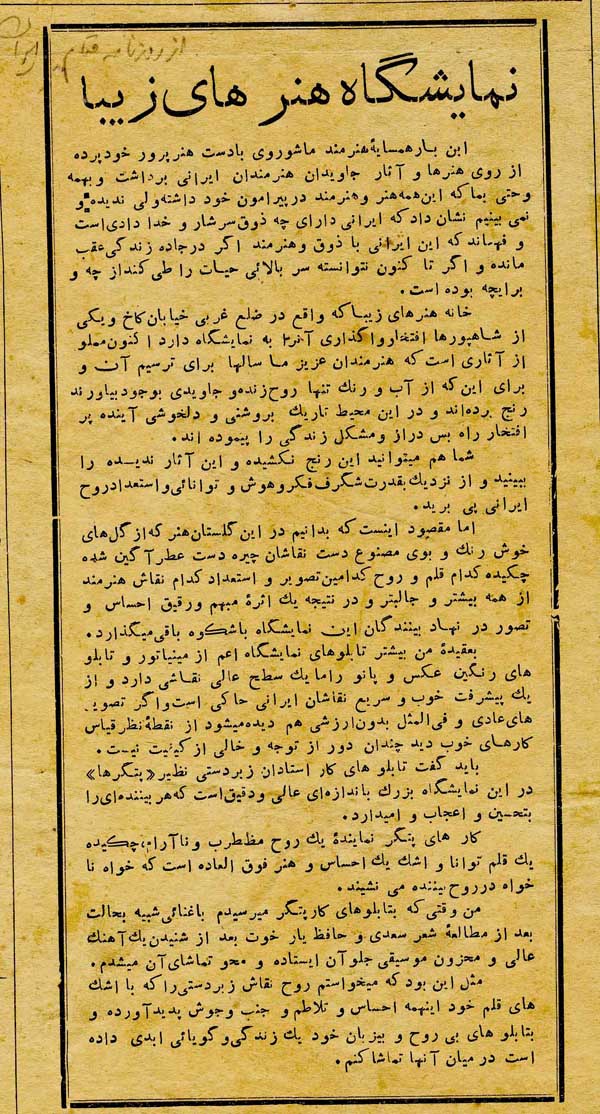 از روزنامه قیام ایران
نمایشگاه هنر های زیبا
این بار همسایهٔ هنرمند ماشوروی بادست هنرپرور خود پرده
از روی هنرها و آثار جاویدان هنرمندان ایرانی برداشت و بهمه
وحتی بما که این همه هنر وهنرمند در پیرامون خود داشته ولی ندیده و
نمی بینیم نشان داد که ایرانی دارای چه ذوق سرشار و خدا دادی است
و فهماند که این ایرانی با ذوق وهنرمند اگر درجاده زندگی عقب
مانده و اگر تا کنون نتوانسته سر بالائی حیات را طی کند از چه و
برایچه بوده است.
خانه هنرهای زیبا که واقع در ضلع غربی خیابان کاخ و یکی
از شاهپورها افتخار واگذاری آنرا به نمایشگاه دارد اکنون مملو
از آثاری است که هنرمندان عزیز ما سالها برای ترسیم آن و
برای این که از آب و رنك تنها روح زنده و جاویدی بوجود بیاورند
رنج برده اند و در این محیط تاریك بروشنی و دلخوشی آینده پر
افتخار راه بس دراز ومشکل زندگی را پیموده اند.
شما هم میتوانید این رنج نکشیده و این آثار ندیده را
ببینید و از نزدیك بقدرت شگرف فکر و هوش و توانائی و استعداد روح
ایرانی پی برید.
اما مقصود اینست که بدانیم در این گلستان هنر که از گل های
خوش رنك و بوی مصنوع دست نقاشان چیره دست عطر آگین شده
چکیده کدام قلم و روح کدامین تصویر و استعداد کدام نقاش هنرمند
از همه بیشتر و جالبتر و در نتیجه یك اثرهٔ مبهم ورقیق احساس و
تصور در نهاد بینندگان این نمایشگاه باشکوه باقی میگذارد.
بعقیدهٔ من بیشتر تابلوهای نمایشگاه اعم از مینیاتور و تابلو
های رنگین عکس و پانو راما یك سطح عالی نقاشی دارد و از
یك پیشرفت خوب و سریع نقاشان ایرانی حاکی است واگر تصویر
های عادی و فی المثل بدون ارزشی هم دیده میشود از نقطهٔ نظر قیاس
کارهای خوب دید چندان دور از توجه و خالی از کیفیت نیست.
باید گفت تابلو های کار استادان زبردستی نظیر «پتگرها»
در این نمایشگاه بزرك باندازه ای عالی ودقیق است که هر بیننده ای را
بتحسین و اعجاب و امیدارد.
کار های پتگر نمایندهٔ یك روح مظطرب و ناآرام، چکیده
یك قلم توانا و اشك یك احساس و هنر فوق العاده است که خواه نا
خواه درروح بیننده می نشیند.
من وقتی که بتابلوهای کار پتگر میرسیدم باغنائی شبیه بحالت
بعد از مطالعهٔ شعر سعدی و حافظ یار خوت بعد از شنیدن یك آهنك
عالی و محزون موسیقی جلو آن ایستاده و محو تماشای آن میشدم.
مثل این بود که میخواستم روح نقاش زبردستی را که با اشك
های قلم خود اینهمه احساس و تلاطم و جنب وجوش پدیدآورده و
بتابلو های بی روح و بیزبان خود یك زندگی و گویائی ابدی داده
است در میان آنها تماشا کنم.